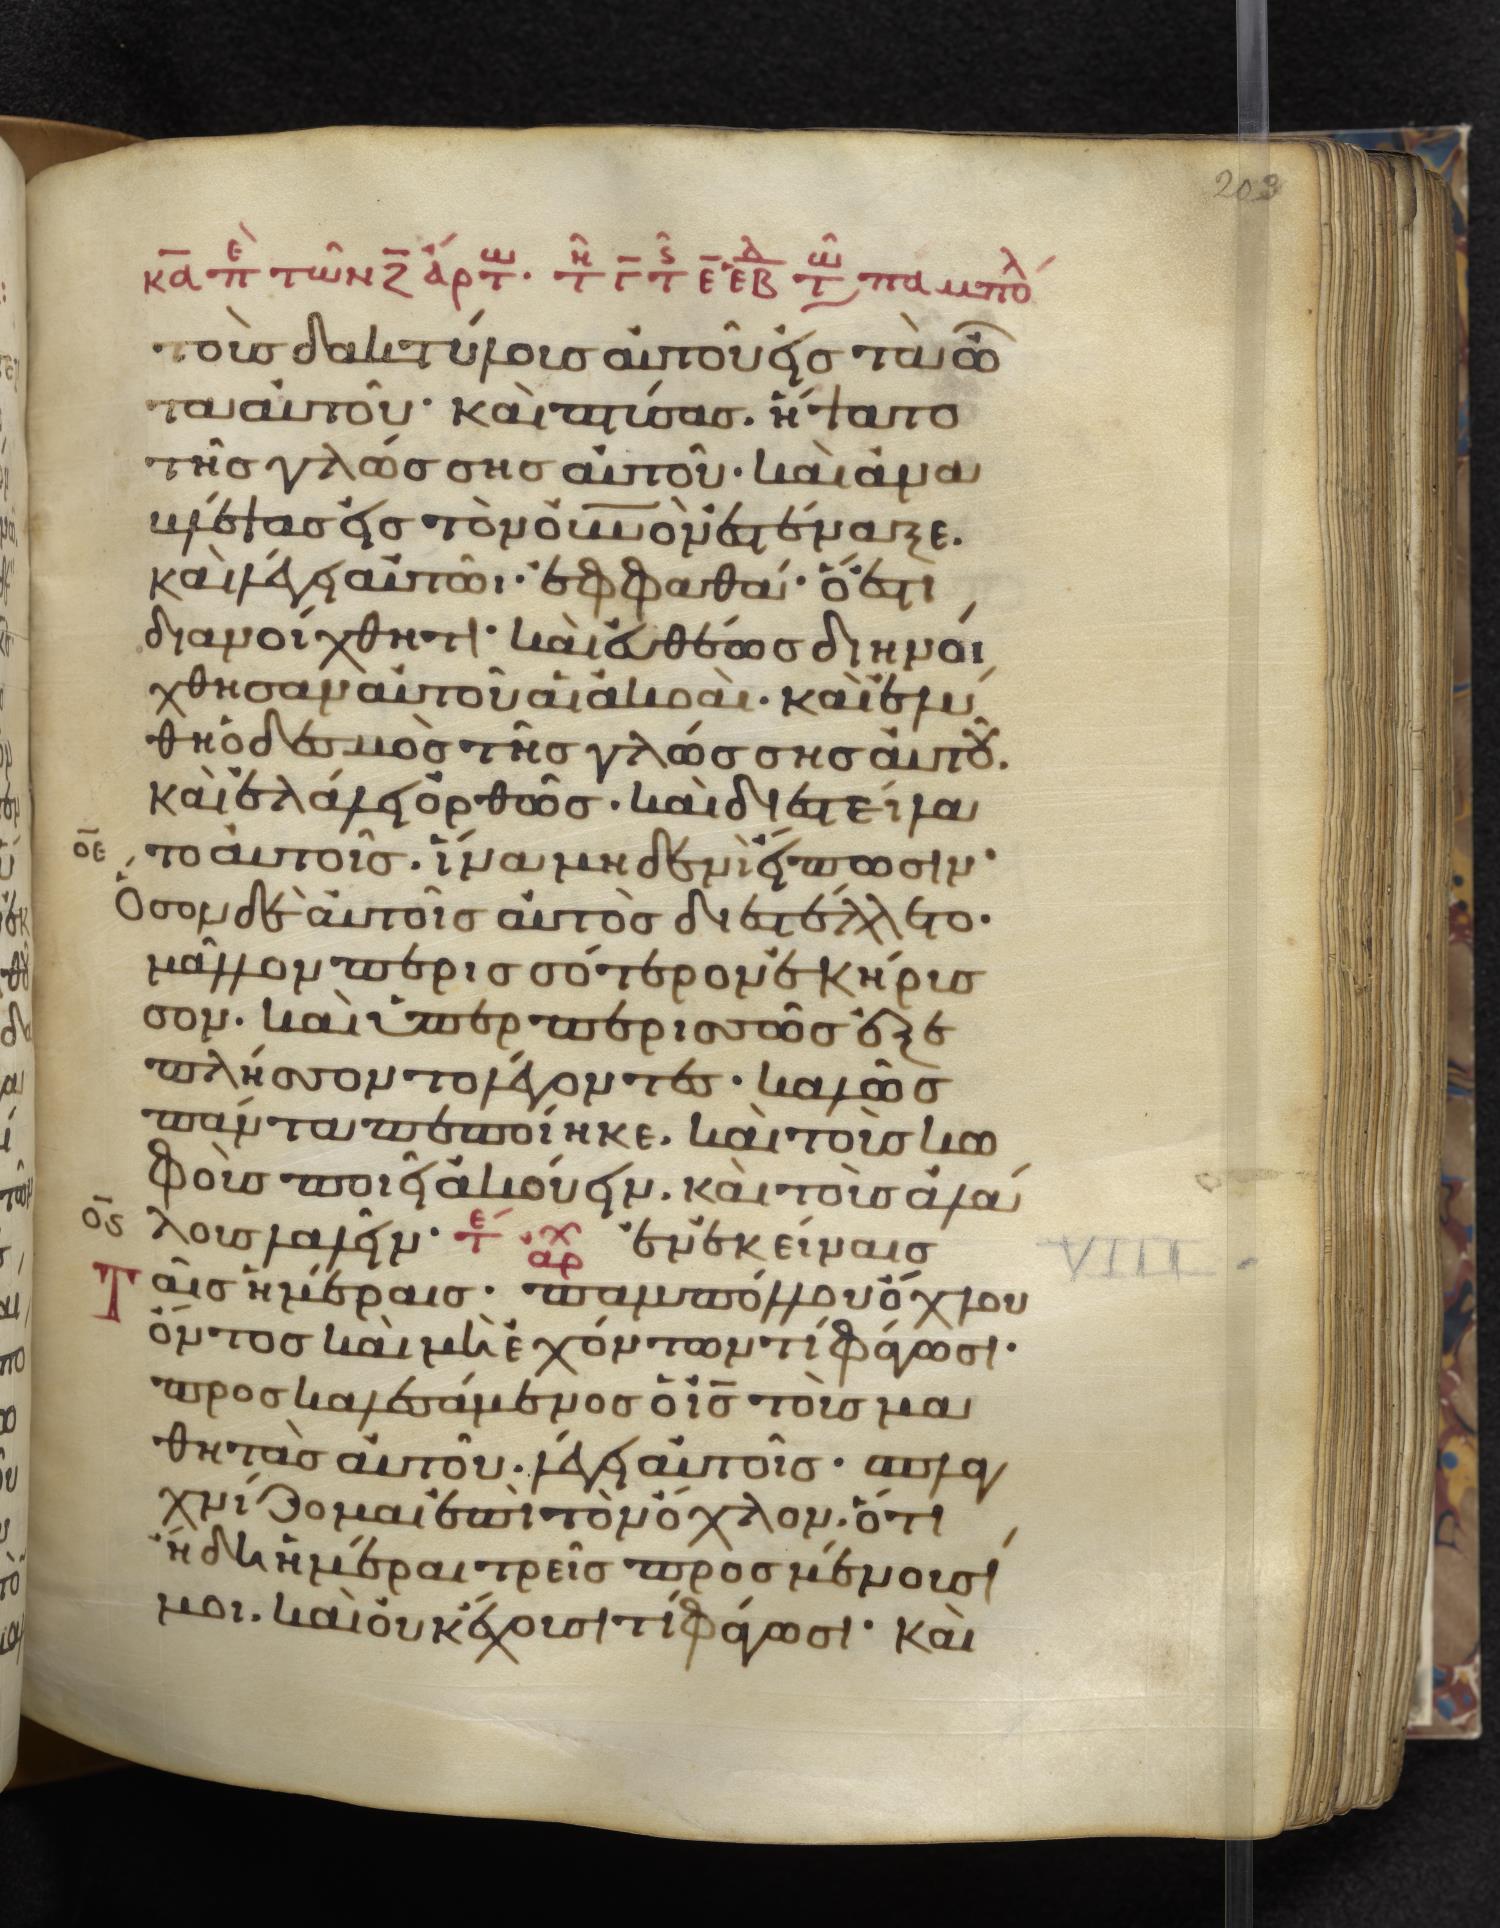 203
τοὺς δακτύλους αὐτοῦ εἰς τὰ ὦ
τα αὐτοῦ· καὶ πτύσας. ἥψατο
τῆς γλώσσης αὐτοῦ· καὶ ἀνα
βλέψας εἰς τὸν οὐνὸν ἐστέναζε.
καὶ λέγει αὐτῶι· ἐφφαθά· ὅ ἐστι
διανοίχθητι· καὶ εὐθέως διηνοί
χθησαν αὐτοῦ αἱ ἀκοαὶ· καὶ ἐλύ
θη ὁ δεσμὸς τῆς γλώσσης αὐτοῦ.
καὶ ἐλάλει ὀρθῶς· καὶ διεστείλα
οε
το αὐτοῖς. ἵνα μηδενὶ εἴπωσιν·
Ὅσον δὲ αὐτοῖς αὐτὸς διεστέλλετο·
μᾶλλον περισσότερον ἐκήρυσ
σον· καὶ ὑπερπερισσῶς ἐξε
πλήσσοντο λέγοντες· καλῶς
πάντα πεποίηκε. καὶ τοὺς κω
φοὺς ποιεῖ ἀκούειν. καὶ τοὺς ἀλά
ος
λους λαλεῖν· ἐν ἐκείναις
VIII
Ταῖς ἡμέραις· παμπόλλου ὄχλου
ὄντος καὶ μὴ ἐχόντων τί φάγωσι·
προσκαλεσάμενος ὁ ις τοὺς μα
θητὰς αὐτοῦ· λέγει αὐτοῖς· σπλαγ
χνίζομαι ἐπὶ τὸν ὄχλον. ὅτι
ἤδη ἡμέραι τρεῖς προσμένουσί
μοι. καὶ οὐκ ἔχουσι τί φάγωσι· καὶ